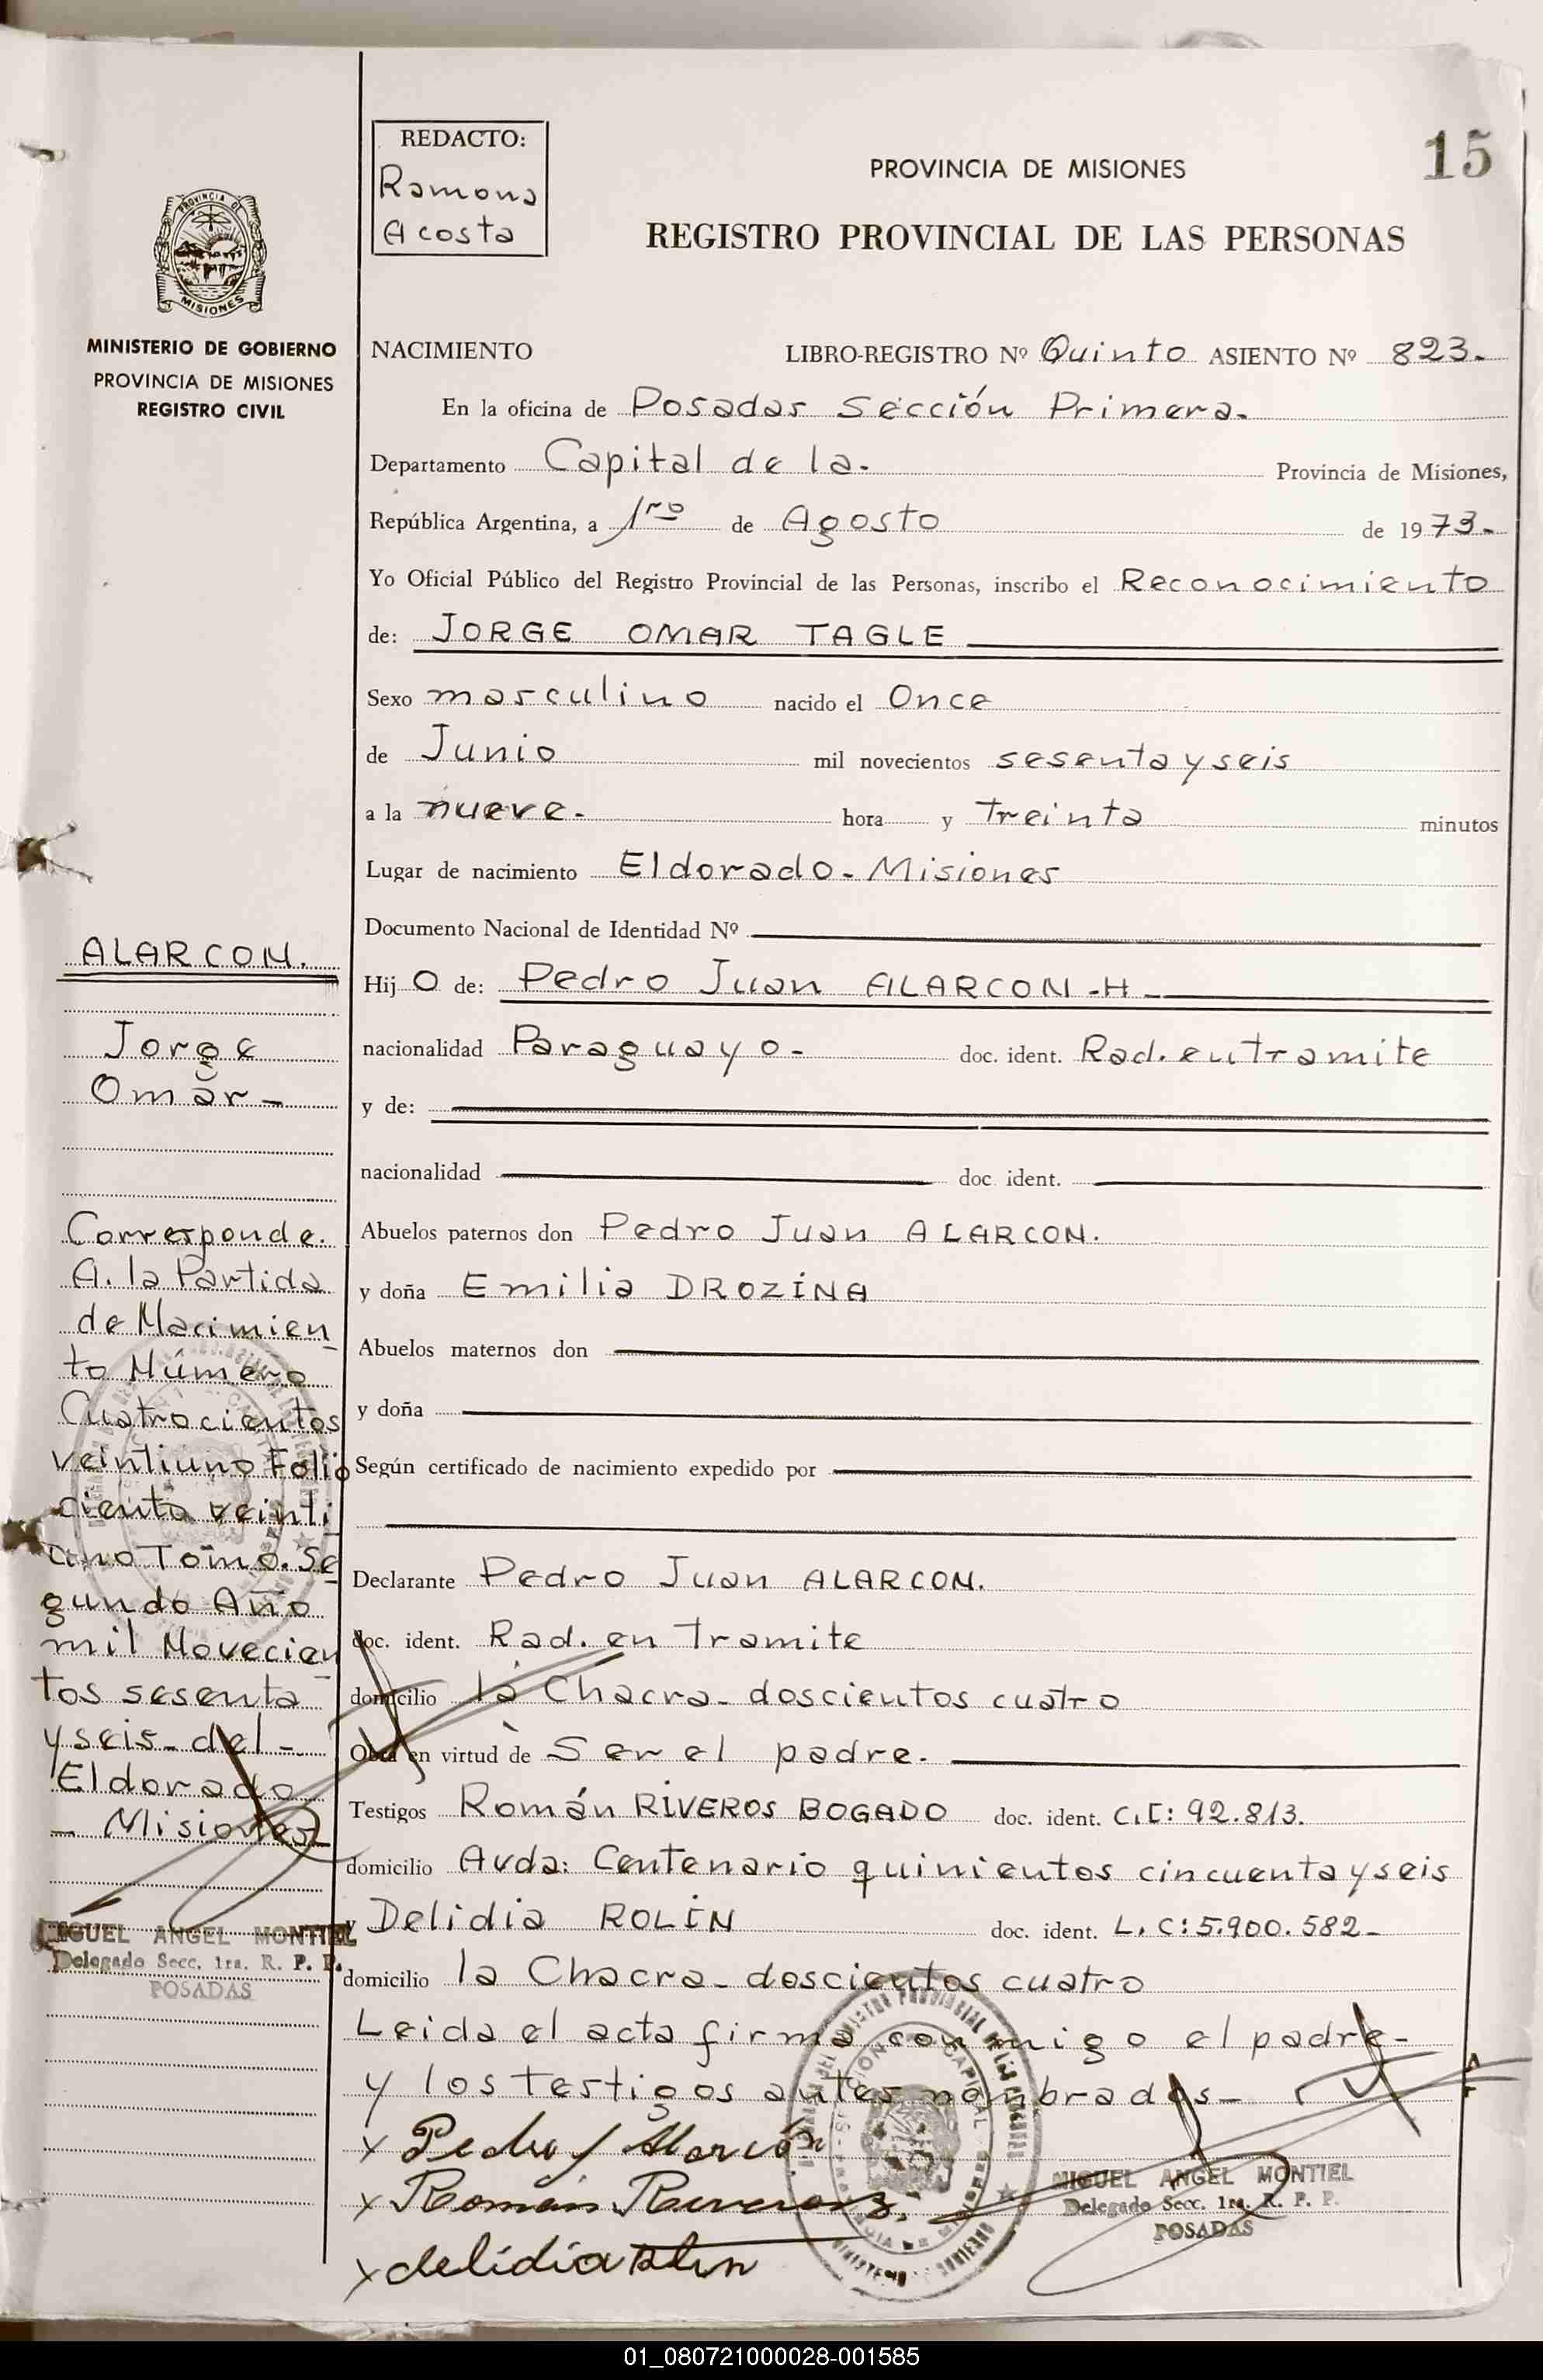 15
REDACTO:
Ramona
Acosta
PROVINCIA DE MISIONES
REGISTRO PROVINCIAL DE LAS PERSONAS
PROVINCIA DE
MISIONES
MINISTERIO DE GOBIERNO
PROVINCIA DE MISIONES
REGISTRO CIVIL
NACIMIENTO LIBRO-REGISTRO Nº Quinto ASIENTO Nº 823.
En la oficina de Posadas Sección Primera.
Departamento Capital de la. Provincia de Misiones,
República Argentina, a 1ro de Agosto de 1973.
Yo Oficial Público del Registro Provincial de las Personas, inscribo el Reconocimiento
de: JORGE OMAR TAGLE
Sexo masculino nacido el Once
de Junio mil novecientos sesenta y seis
a la nueve. hora y treinta minutos
Lugar de nacimiento Eldorado - Misiones
Documento Nacional de Identidad Nº
Hijo de: Pedro Juan ALARCON -H-
nacionalidad Paraguayo- doc. ident. Rad. en tramite
y de:
nacionalidad doc. ident.
Abuelos paternos don Pedro Juan ALARCON.
y doña Emilia DROZINA
Abuelos maternos don
y doña
Según certificado de nacimiento expedido por
Declarante Pedro Juan ALARCON.
doc. ident. Rad. en tramite
domicilio la Chacra - doscientos cuatro
Obra en virtud de Ser el padre.
Testigos Román RIVEROS BOGADO doc. ident. C.I: 92.813.
domicilio Avda: Centenario quinientos cincuenta y seis
y Delidia ROLIN doc. ident. L.C: 5.900.582-
domicilio la Chacra - doscientos cuatro
Leida el acta firma conmigo el padre-
y los testigos antes nombrados-
x Pedro J Alarcón
x Roman Riveros B.
x delidia Rolin
MIGUEL ANGEL MONTIEL
Delegado Secc. 1ra. R. P. P.
POSADAS
ALARCON.
Jorge
Omar-
Corresponde.
A. la Partida
de Nacimien
to Número
Cuatrocientos
veintiuno Folio
ciento veinti
uno Tomo. Se
gundo Año
mil Novecien
tos sesenta
y seis - del -
Eldorado
- Misiones
MIGUEL ANGEL MONTIEL
Delegado Secc. 1ra. R. P. P.
POSADAS
01_080721000028-001585